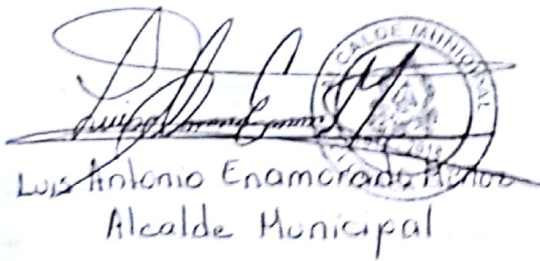 ALCALDE MUNICIPAL
Luis Antonio Enamorado
Alcalde Municipal